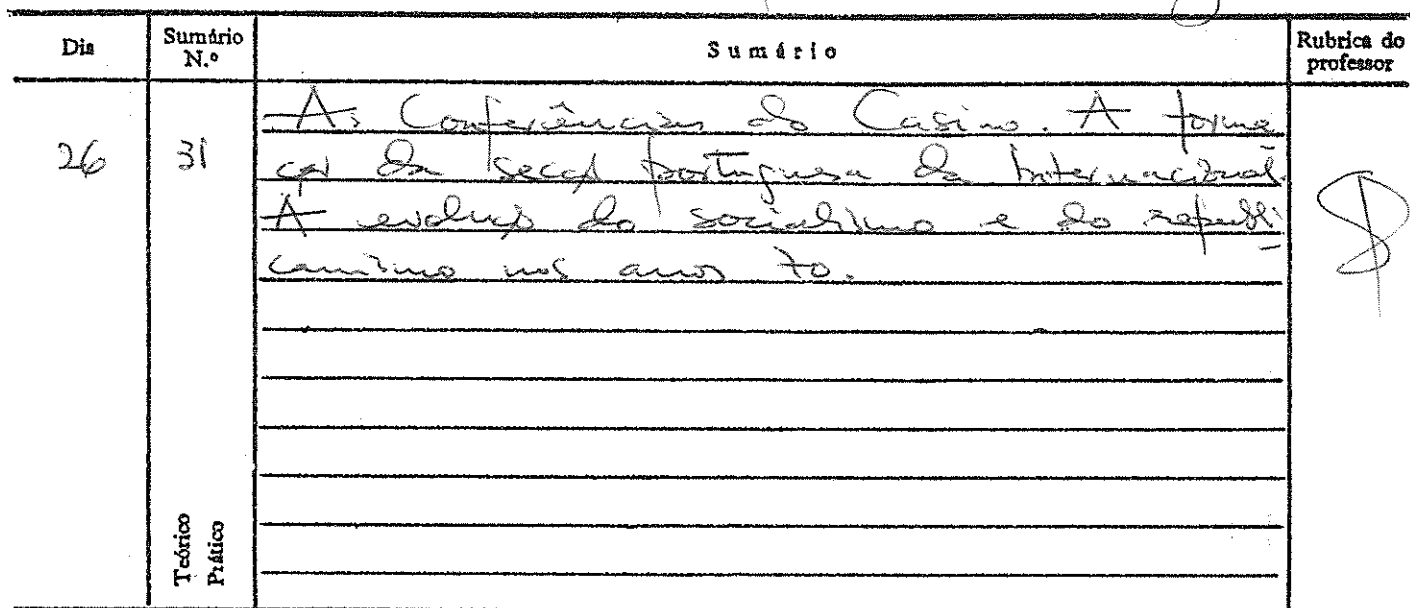 Dia Sumário N.º Sumário Rubrica do professor
26 31 As Conferências do Casino. A forma
ção da secção portuguesa da Internacional.
A evolução do socialismo e do republi
canismo nos anos 70.
Teórico
Prático